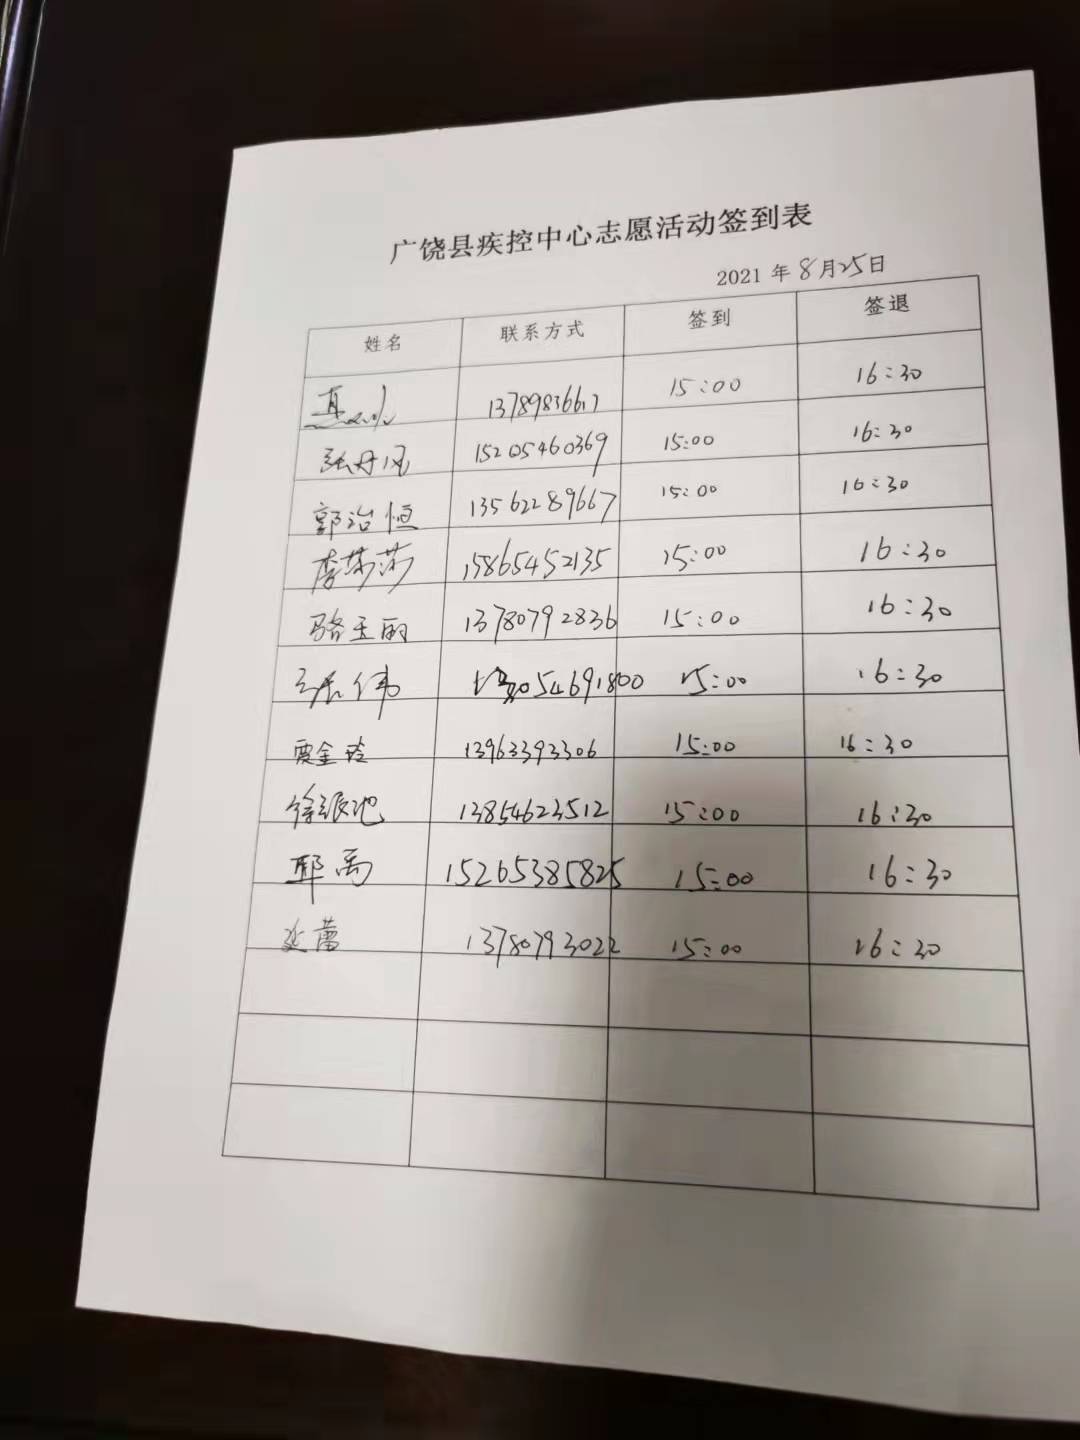 广饶县疾控中心志愿活动签到表
2021 年 8月25日
姓名 联系方式 签到 签退
13789836617 15:00 16:30
张丹凤 15205460369 15:00 16:30
郭治恒 13562289667 15:00 16:30
李莎莎 15865452135 15:00 16:30
骆玉丽 13780792836 15:00 16:30
张伟 15:00 16:30
贾金玲 13963393306 15:00 16:30
13854623512 15:00 16:30
耶禹 15265385825 15:00 16:30
延蕾 13780793022 15:00 16:30